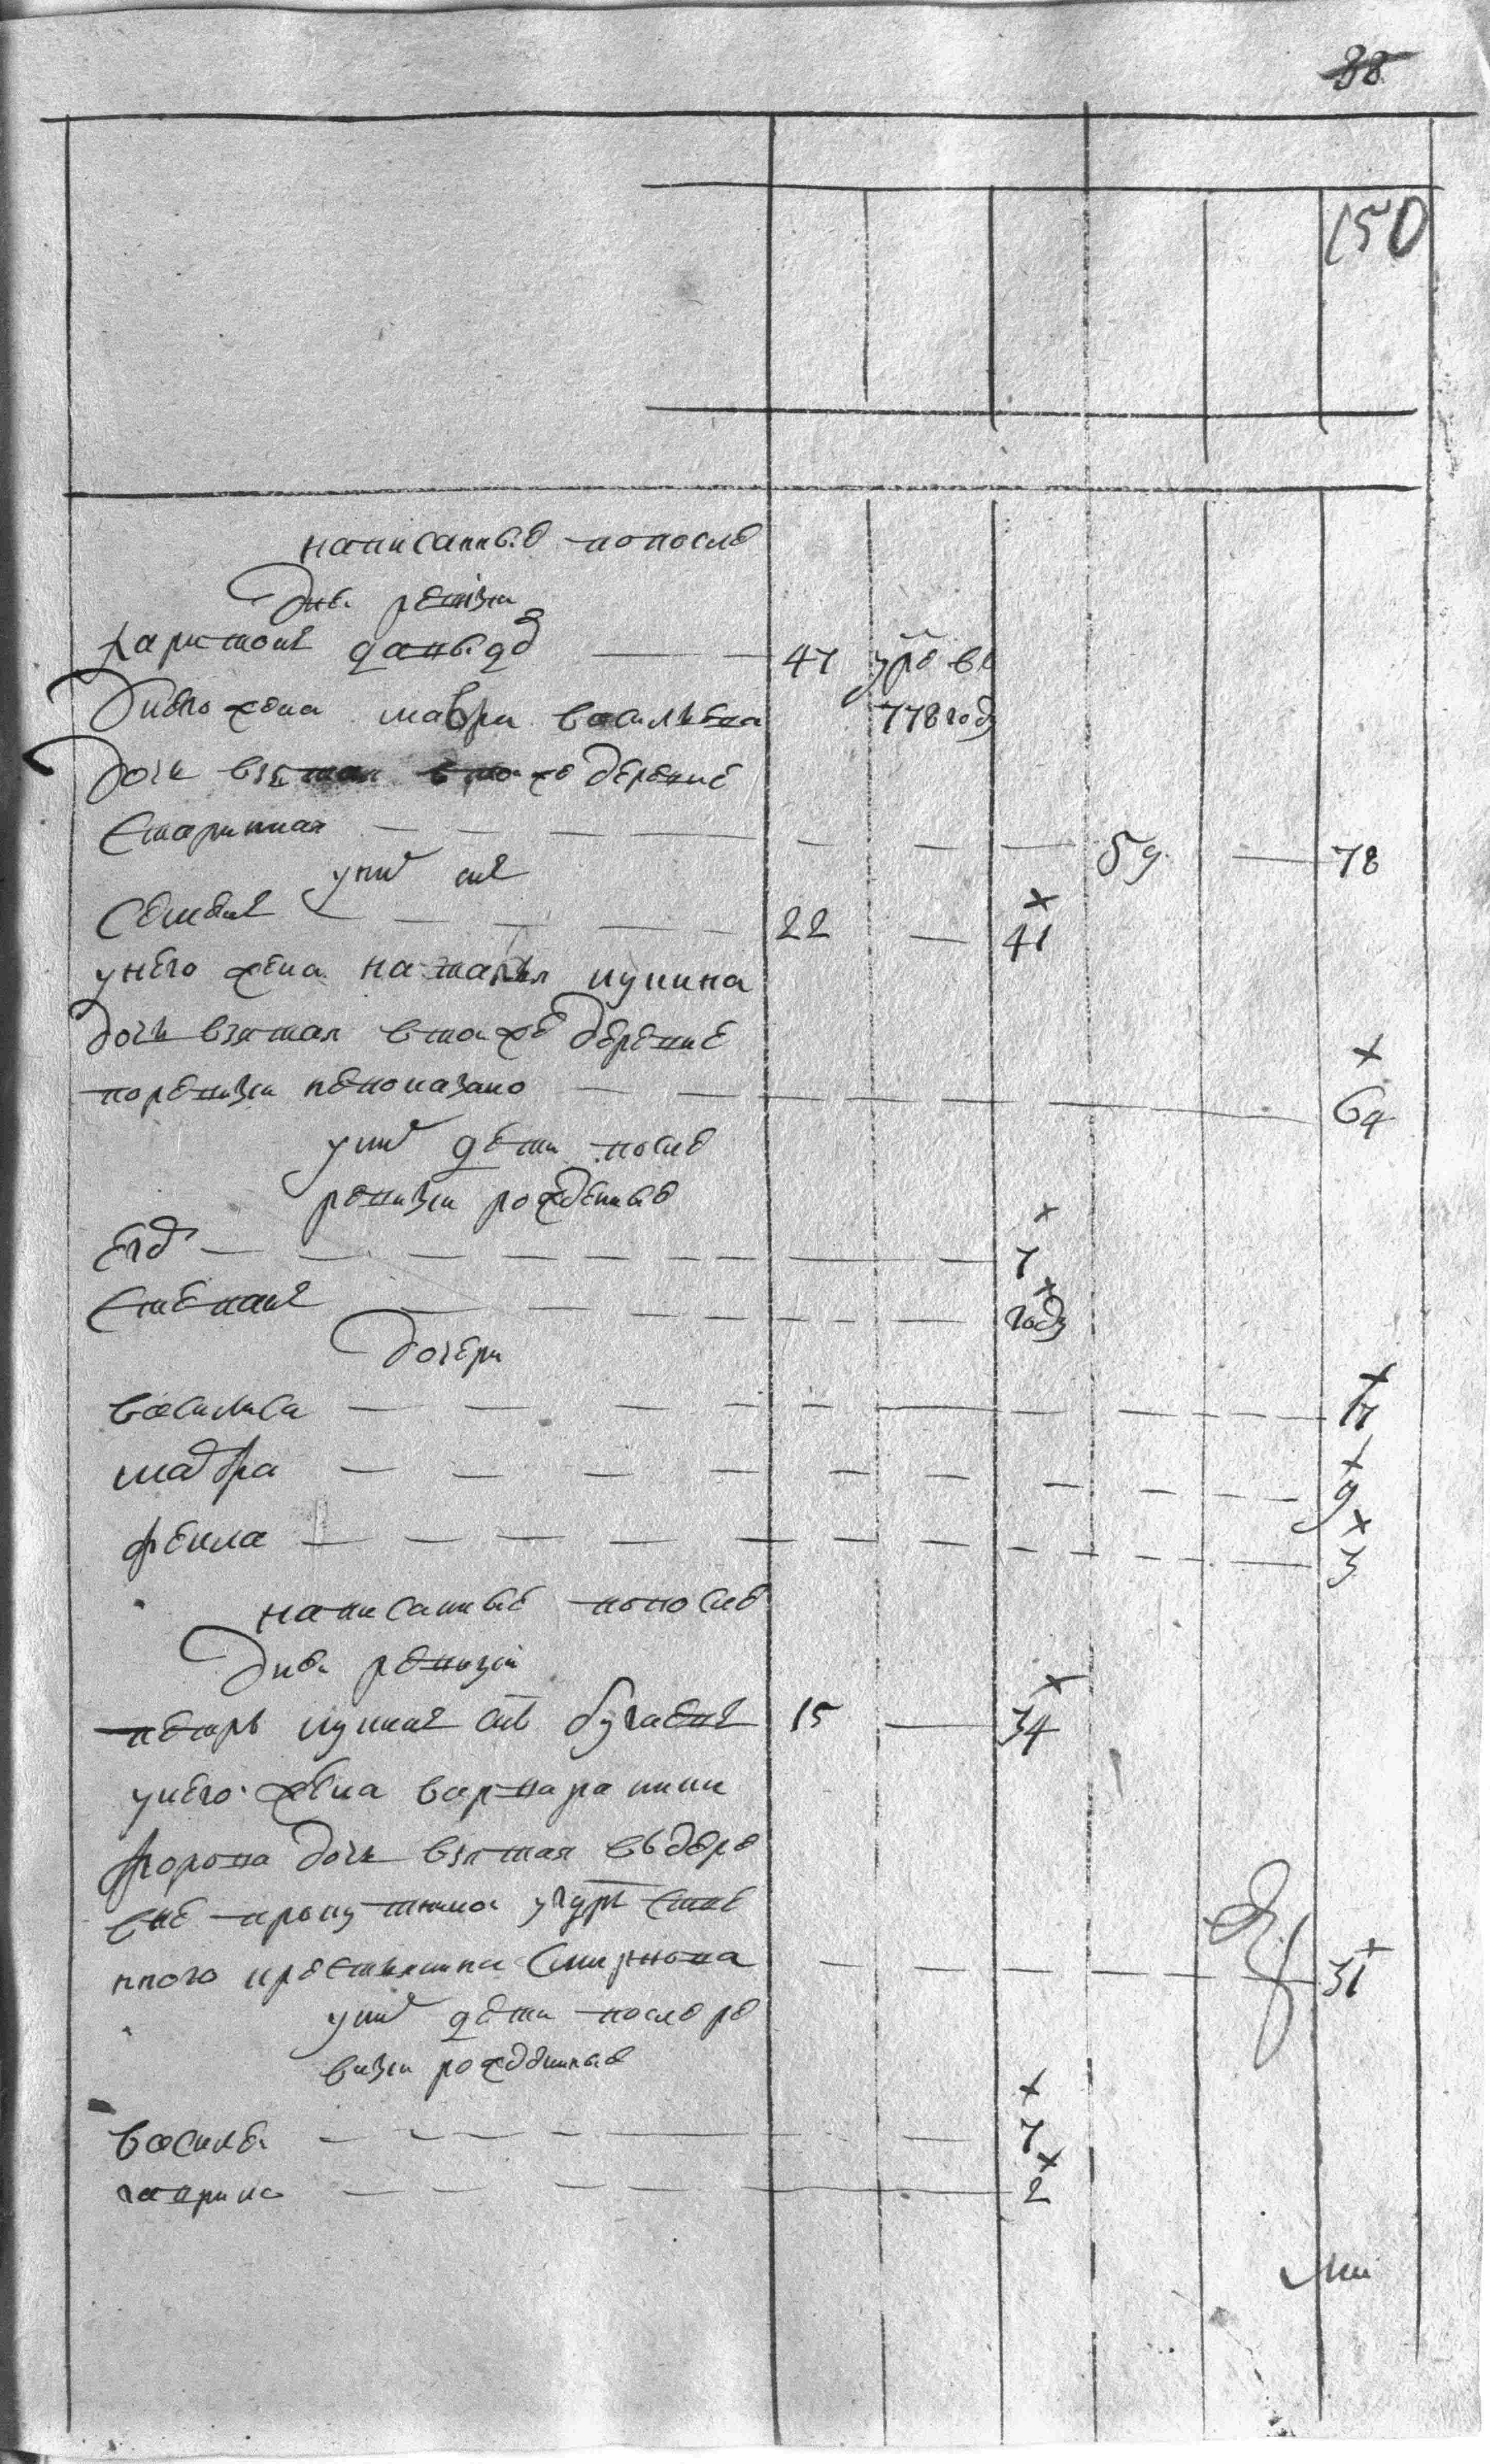 88
150
написанные попосле
дней ревизи
харитонъ давыдо — 47 умре в
778 году
у него жена мавра васильева
дочь взятая в то же деревне
старинная — 59 — 78
у них сынъ
Семенъ — 22 — 41
у него жена наталья
дочь взятая в то же деревне
по ревизи непоказано — 64
у них дети после
ревизи рожденные
Его — 7
Степанъ — году
дочери
василиса — 11
мавра — 9
фекла — 3
написанные попосле
дней ревизи
петръ сынъ 15 — 34
у него жена варвара ники
форова дочь взятая въ дере
вне
ного крестьянина Смирнова — 31
у них дети после ре
визи рожденные
василей — 7
гаврила — 2